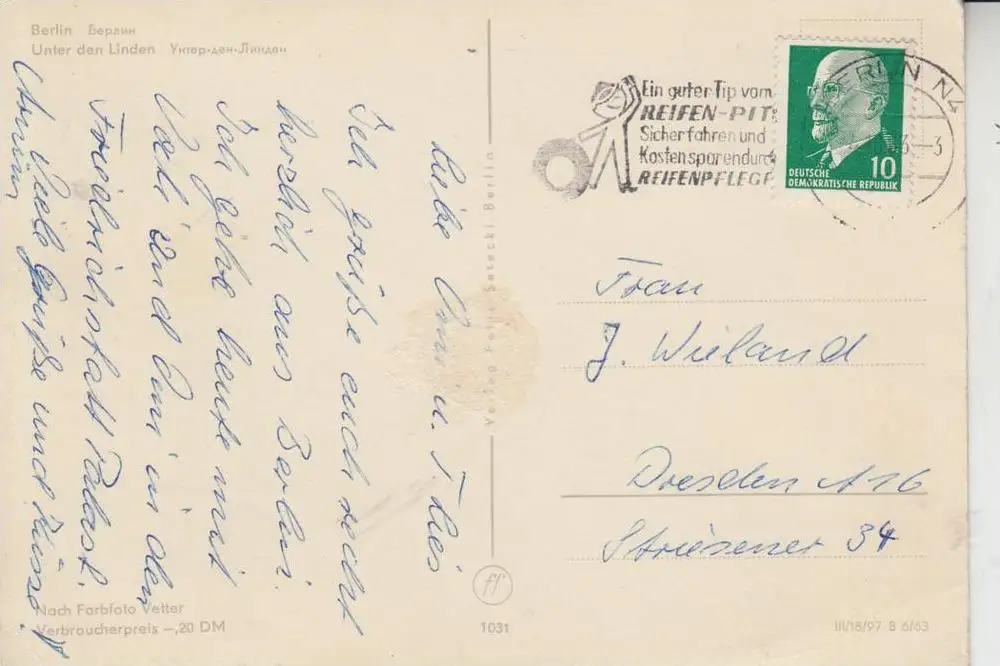 Berlin Берлин
Unter den Linden Унтер-ден-Линден
Liebe Omi u.
Ich grüße euch recht
herzlich aus Berlin.
Ich gehe heute mit
Vati und Omi in den
Friedrichstatt Palast.
Viele Grüße und Küsse
Nach Farbfoto Vetter
Verbraucherpreis -,20 DM
Verlag Felix Setecki Berlin
ff
1031
Ein guter Tip vom
REIFEN-PIT
Sicher fahren und
Kosten sparen durc
REIFENPFLEGE
BERLIN N4
DEUTSCHE
DEMOKRATISCHE REPUBLIK
10
Frau
J. Wieland
Dresden A 16
Striesener 34
III/18/97 B 6/63